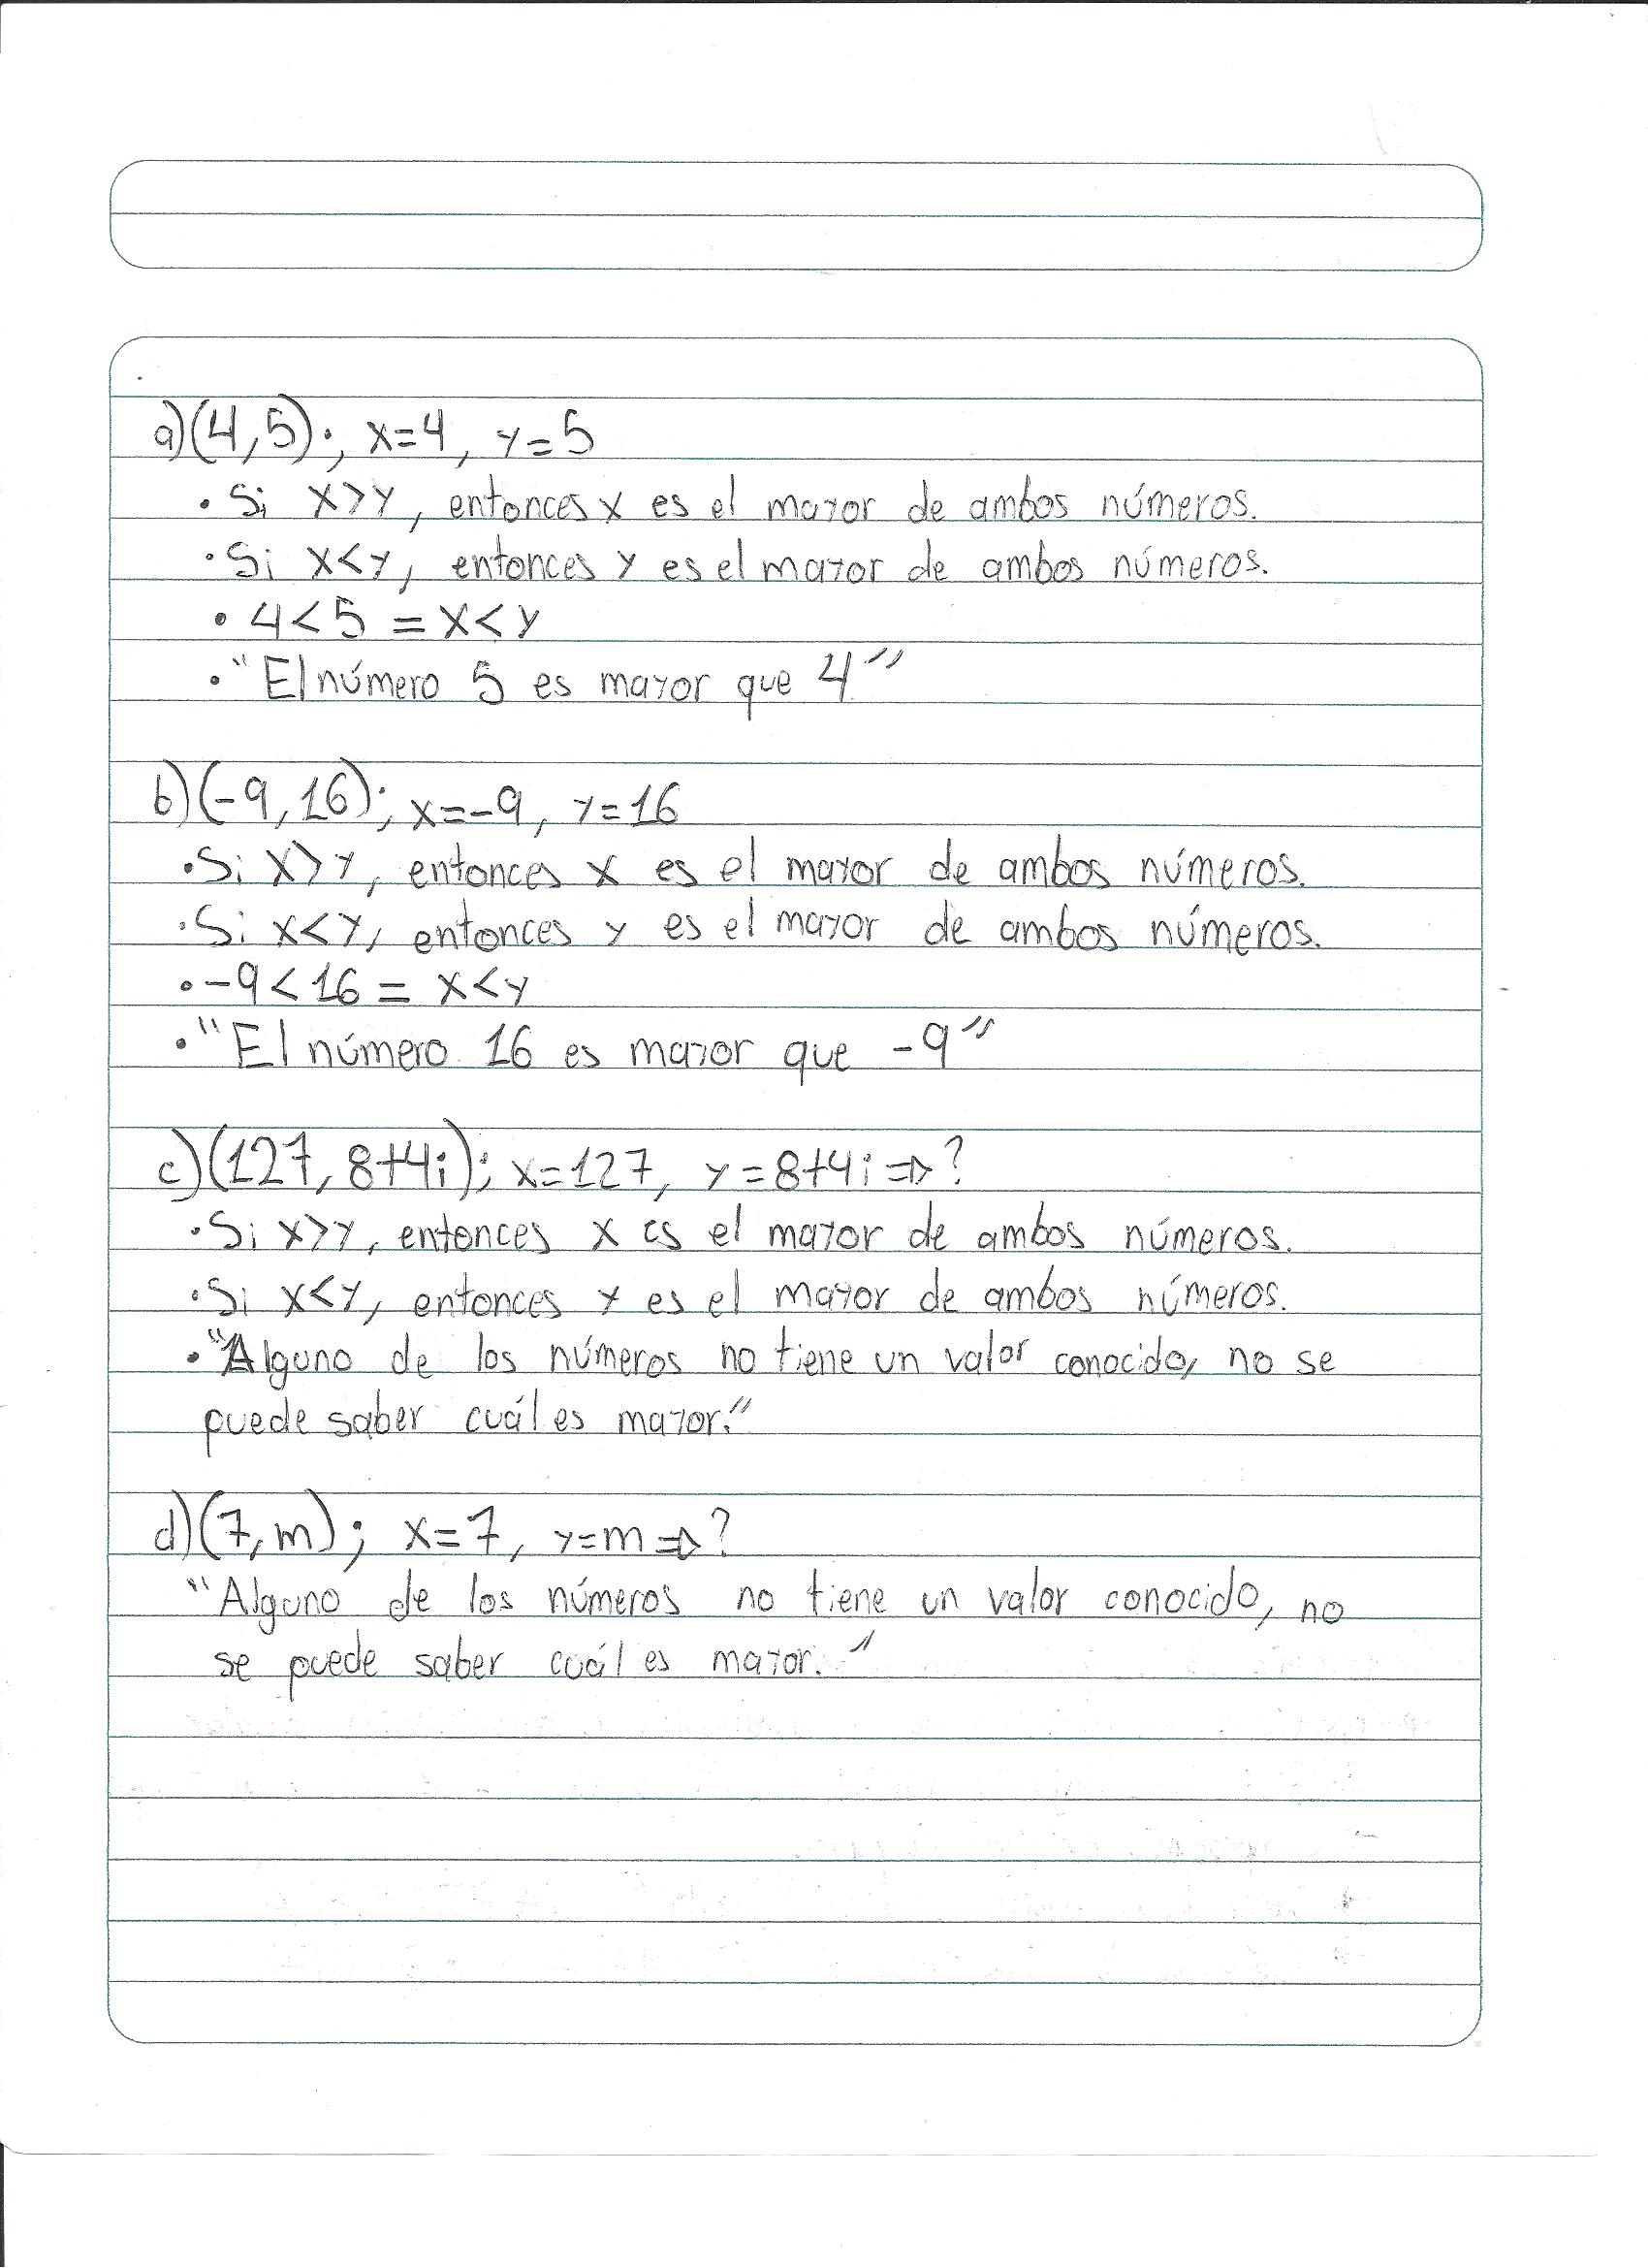 a)(4,5); x=4, y=5
• Si x>y, entonces x es el mayor de ambos números.
• Si x<y, entonces y es el mayor de ambos números.
• 4<5 = x<y
• "El número 5 es mayor que 4"
b)(-9,16); x=-9, y=16
• Si x>y, entonces x es el mayor de ambos números.
• Si x<y, entonces y es el mayor de ambos números.
• -9<16 = x<y
• "El número 16 es mayor que -9"
c)(127, 8+4i); x=127, y=8+4i ⇒ ?
• Si x>y, entonces x es el mayor de ambos números.
• Si x<y, entonces y es el mayor de ambos números.
• "Alguno de los números no tiene un valor conocido, no se
puede saber cuál es mayor."
d)(7,m); x=7, y=m ⇒ ?
"Alguno de los números no tiene un valor conocido, no
se puede saber cuál es mayor."